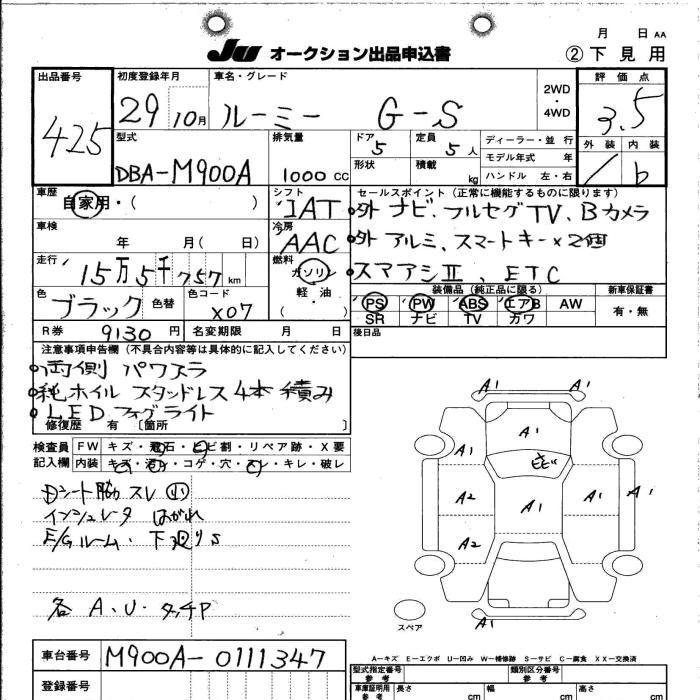 月 日 AA
JU オークション出品申込書 ②下見用
出品番号 初度登録年月 車名・グレード 2WD・4WD 評価点
425 29 10月 ルーミー G-S 3.5
型式 排気量 ドア 定員 ディーラー・並行 外装 内装
DBA-M900A 1000 cc 5 5人 モデル年式 年 b
形状 積載 kg ハンドル 左・右
車歴 シフト セールスポイント(正常に機能するものに限ります)
自家用・( ) IAT 外 ナビ、フルセグTV、Bカメラ
車検 冷房
年 月( 日) AAC 外 アルミ、スマートキー×2個
走行 燃料
15万5千757km ガソリン 軽・油 ( スマアシⅡ、ETC
色 色替 色コード 装備品(純正品に限る) 新車保証書
ブラック X07 PS PW ABS エアB AW 有・無
SR ナビ TV カワ
R券 9130円 名変期限 月 日 後日品
注意事項申告欄(不具合内容等は具体的に記入してください)
両側 パワスラ
純ホイル スタッドレス 4本 積み
LED フォグライト
修復歴 有 〔箇所 〕
検査員 FW キズ・飛石・ヒビ割・リペア跡・X要
記入欄 内装 キズ・コゲ・穴・スレ・キレ・破レ
Dシート脇 スレ
インシュレータ はがれ
E/Gルーム・下廻りS
各 A.U.タッチP
A1 A1
A1
A1 ヒビ A1
A2 A1 A1 A1
A2
A1
スペア
A-キズ E-エクボ U-凹み W-補修跡 S-サビ C-腐食 XX-交換済
車台番号 M900A-0111347
型式指定番号 参考 類別区分番号 参考
登録番号
車庫証明用 参考 長さ cm 幅 cm 高さ cm